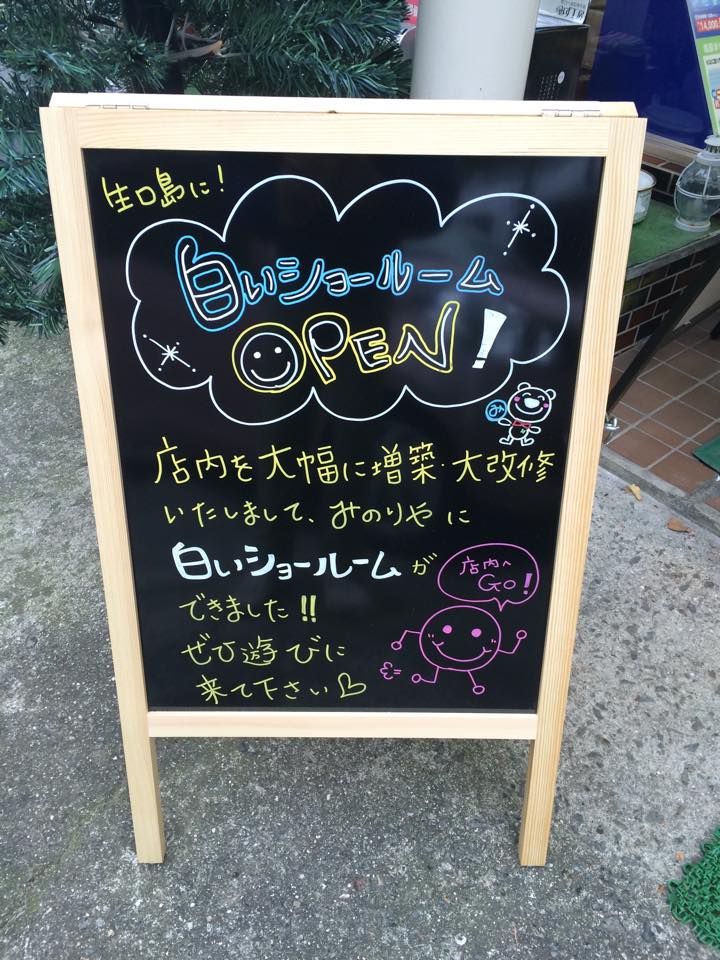 生口島に!
白いショールーム
OPEN!
み
店内を大幅に増築・大改修
いたしまして、みのりやに
白いショールームが
できました!!
ぜひ遊びに
来て下さい
店内へ
GO!